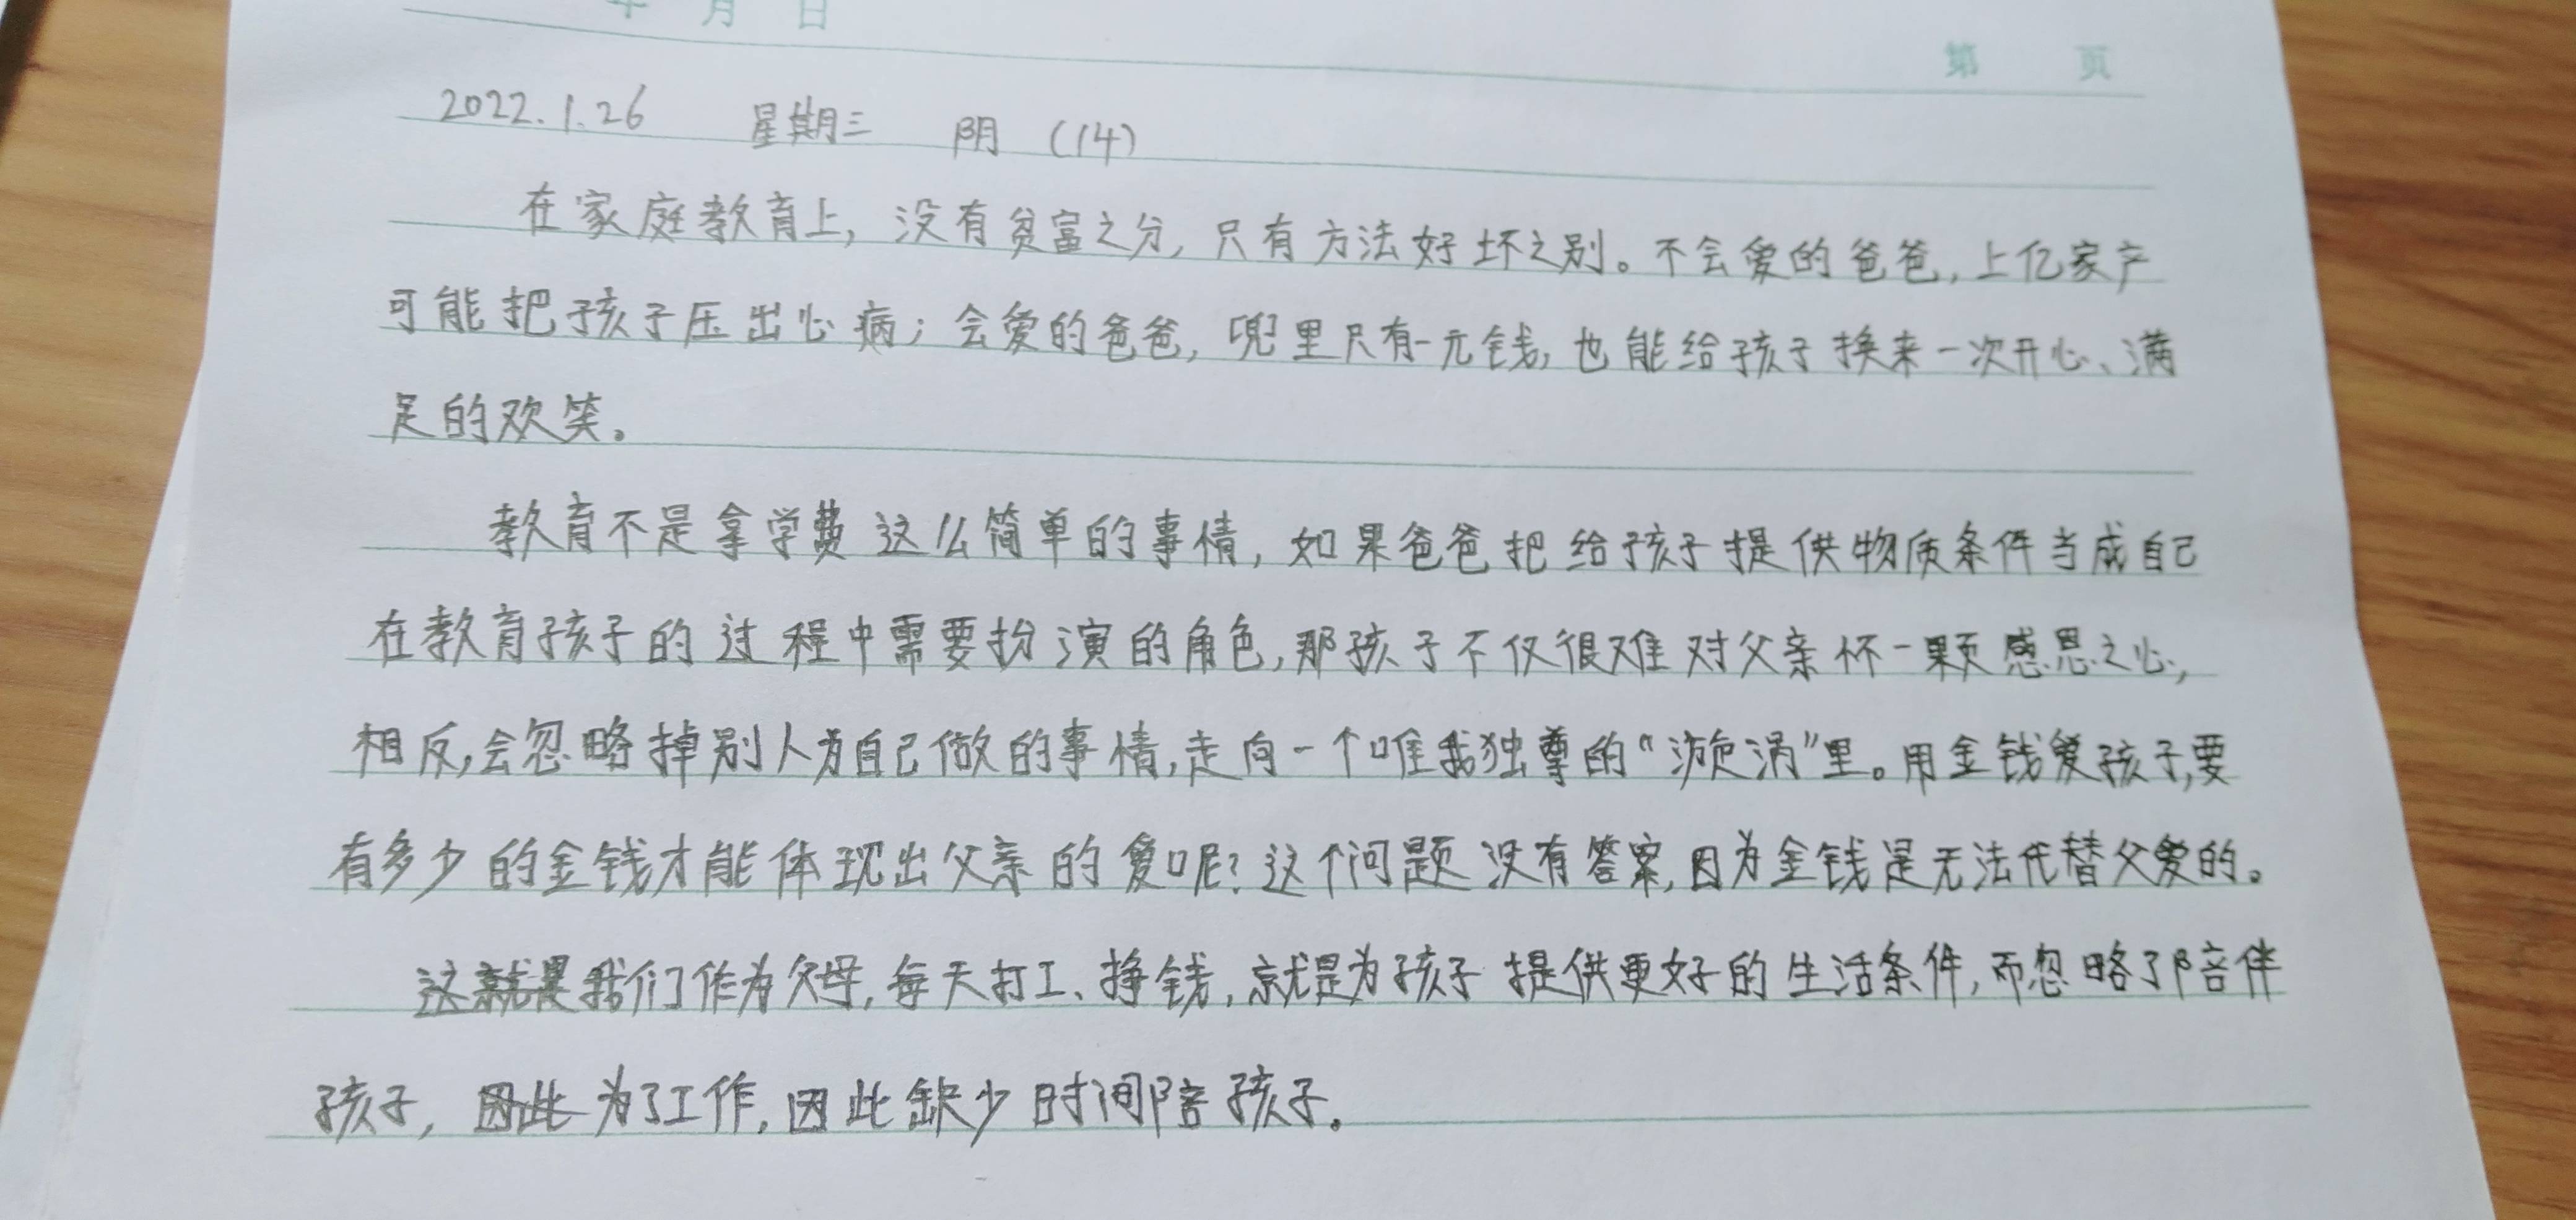 年 月 日
第 页
2022.1.26 星期三 阴 (14)
在家庭教育上，没有贫富之分，只有方法好坏之别。不会爱的爸爸，上亿家产
可能把孩子压出心病；会爱的爸爸，兜里只有一元钱，也能给孩子换来一次开心、满
足的欢笑。
教育不是拿学费这么简单的事情，如果爸爸把给孩子提供物质条件当成自己
在教育孩子的过程中需要扮演的角色，那孩子不仅很难对父亲怀一颗感恩之心，
相反，会忽略掉别人为自己做的事情，走向一个唯我独尊的“漩涡”里。用金钱爱孩子，要
有多少的金钱才能体现出父亲的爱呢？这个问题没有答案，因为金钱是无法代替父爱的。
这就是我们作为父母，每天打工、挣钱，就是为孩子提供更好的生活条件，而忽略了陪伴
孩子，因此为了工作，因此缺少时间陪孩子。